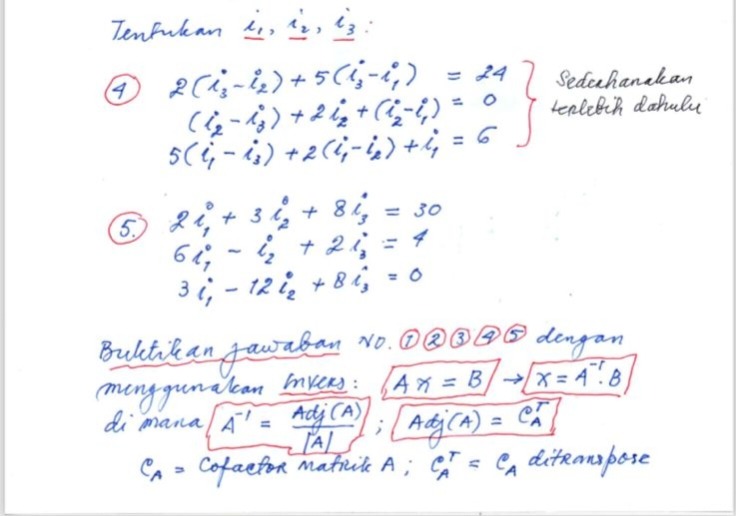 Tentukan i₁, i₂, i₃:
④ 2(i₃-i₂) + 5(i₃-i₁) = 24
(i₂-i₃) + 2i₂ + (i₂-i₁) = 0
5(i₁-i₃) + 2(i₁-i₂) + i₁ = 6
Sederhanakan
terlebih dahulu
⑤. 2i₁ + 3i₂ + 8i₃ = 30
6i₁ - i₂ + 2i₃ = 4
3i₁ - 12i₂ + 8i₃ = 0
Buktikan jawaban NO. ①②③④⑤ dengan
menggunakan invers: Ax = B → x = A⁻¹.B
di mana A⁻¹ = Adj(A)/|A| ; Adj(A) = C_A^T
C_A = Cofactor Matrik A ; C_A^T = C_A ditranspose